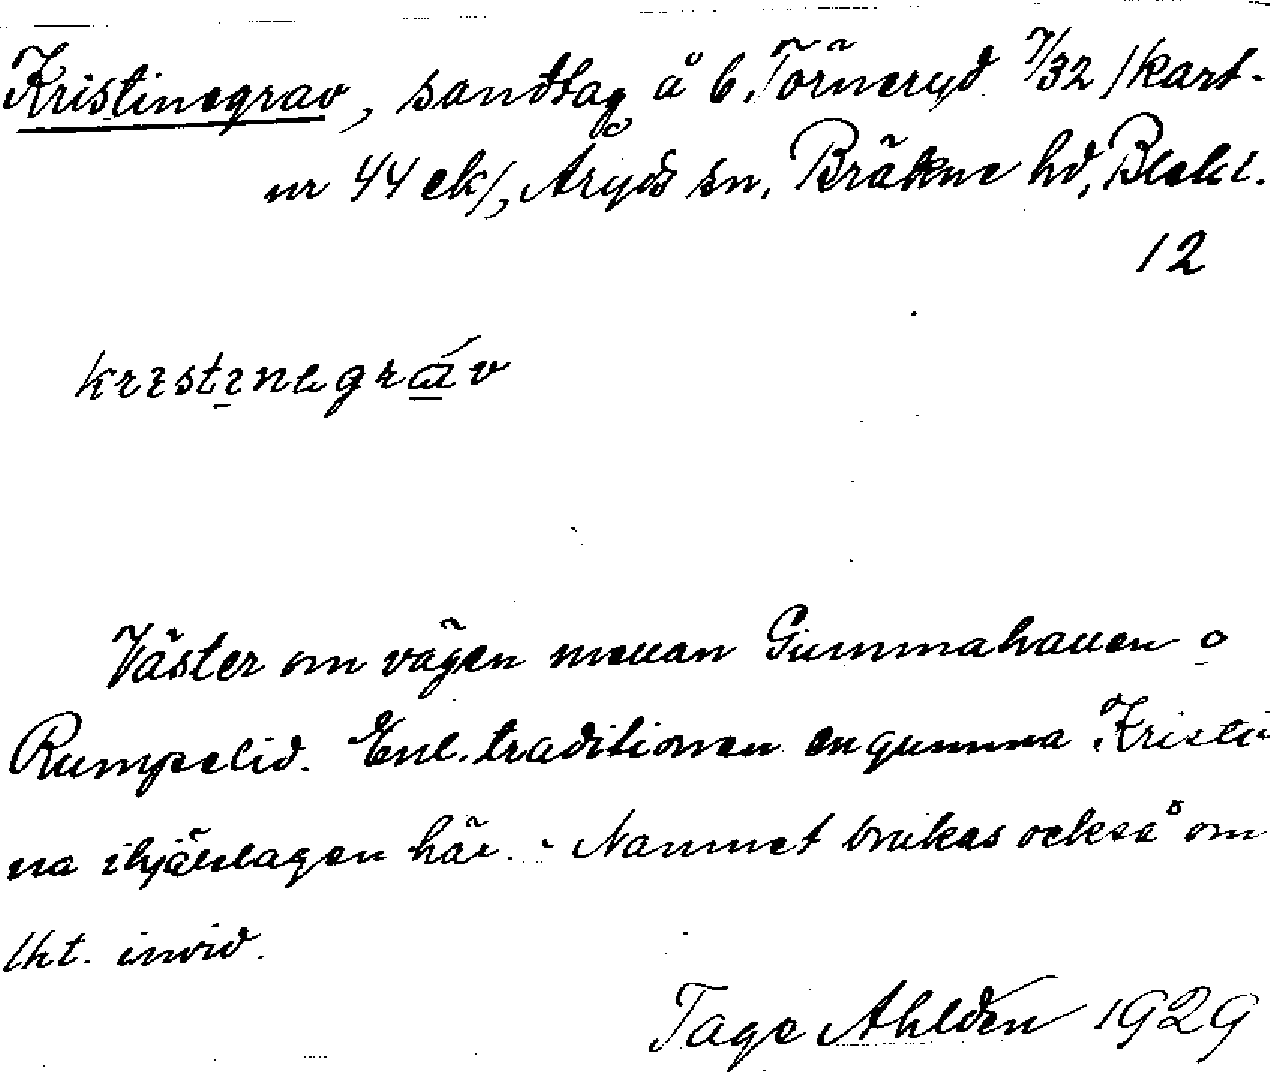 Kristinegrav, sandtag å b. Törneryd 7/32 /kart-
nr 44 ek/, Åryds sn, Bräkne hd, Blek l.
12
kristinegrav
Väster om vägen mellan Gummahallen o
Rumpelid. Enl. traditionen en gumma Kristi-
na ihjälslagen här. - Namnet brukas också om
lht. invid.
Tage Ahldén 1929